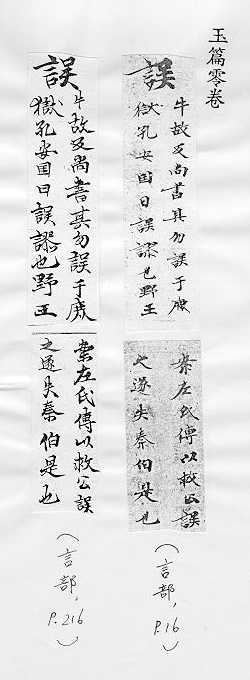 玉篇零卷
誤
牛故反尚書其勿誤于庶
獄孔安国曰誤謬也野王
案左氏傳以救公誤
之遂失秦伯是也
(言部,P.16)
誤
牛故反尚書其勿誤于庶
獄孔安国曰誤謬也野王
案左氏傳以救公誤
之遂失秦伯是也
(言部,P.216)